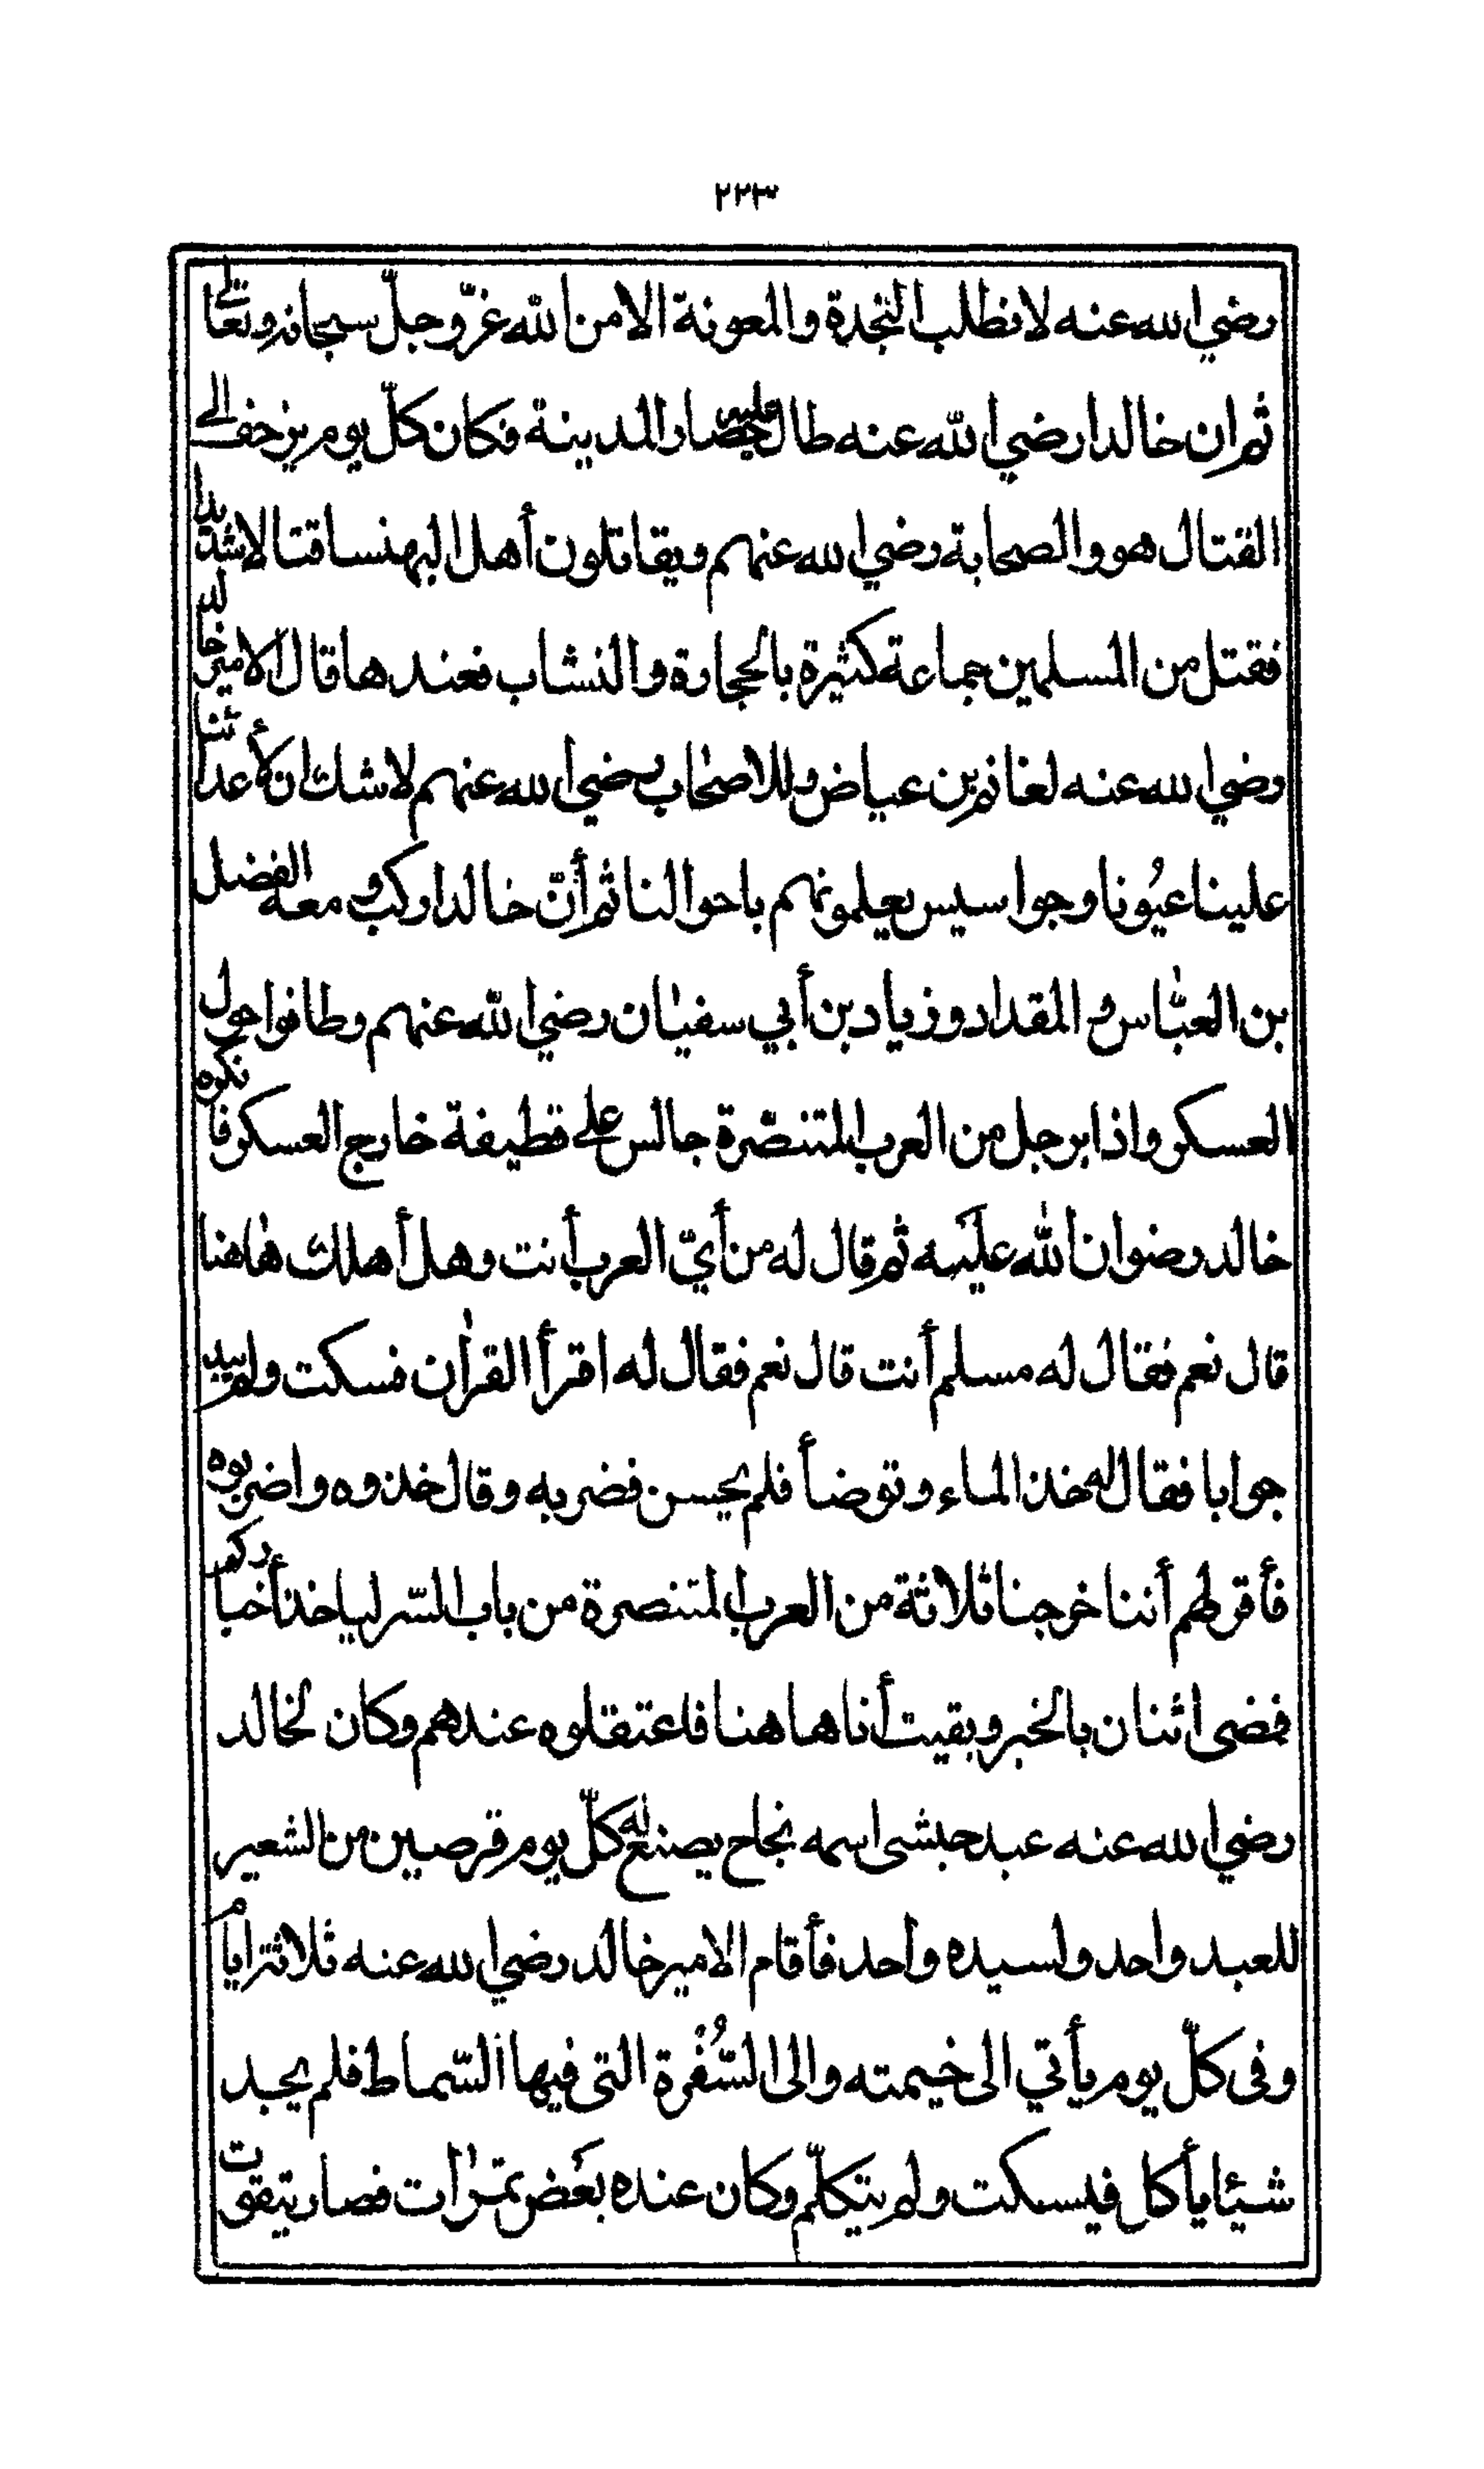 ٢٢٣
رضي الله عنه لا نطلب النجدة والمعونة الا من الله عزّ وجلّ سبحانه وتعالى
ثم ان خالدا رضي الله عنه طال عليه حصار المدينة فكان كلّ يوم يزحف الى
القتال هو والصحابة رضي الله عنهم ويقاتلون أهل البهنسا قتالا شديدا
فقتل من المسلمين جماعة كثيرة بالحجارة والنشاب فعندها قال الامير خالد
رضي الله عنه لغانم بن عياض وللاصحاب رضي الله عنهم لا شك ان لأعدائنا
علينا عيُونا وجواسيس يعلمونهم باحوالنا ثم أنّ خالدا ركب ومعه الفضل
بن العبّاس والمقداد وزياد بن أبي سفيان رضي الله عنهم وطافوا حول
العسكر واذا برجل من العرب المتنصّرة جالس على قطيفة خارج العسكر فانكره
خالد رضوان الله عليه ثم قال له من أيّ العرب أنت وهل أهلك هاهنا
قال نعم فقال له مسلم أنت قال نعم فقال له اقرأ القرأن فسكت ولم يبد
جوابا فقال له خذ الماء وتوضأ فلم يحسن فضربه وقال خذوه واضربوه
فأقر لهم أننا خرجنا ثلاثة من العرب المتنصرة من باب السّر لياخذ أخباركم
فمضى اثنان بالخبر وبقيت أنا هاهنا فاعتقلوه عندهم وكان لخالد
رضي الله عنه عبد حبشى اسمه نجاح يصنع له كلّ يوم قرصين من الشعير
للعبد واحد ولسيده واحد فأقام الامير خالد رضي الله عنه ثلاثة ايام
وفى كلّ يوم يأتي الى خيمته والى السُّفرة التى فيها السّماط فلم يجد
شيئا يأكل فيسكت ولم يتكلّم وكان عنده بعض تمرات فصار يتقوت